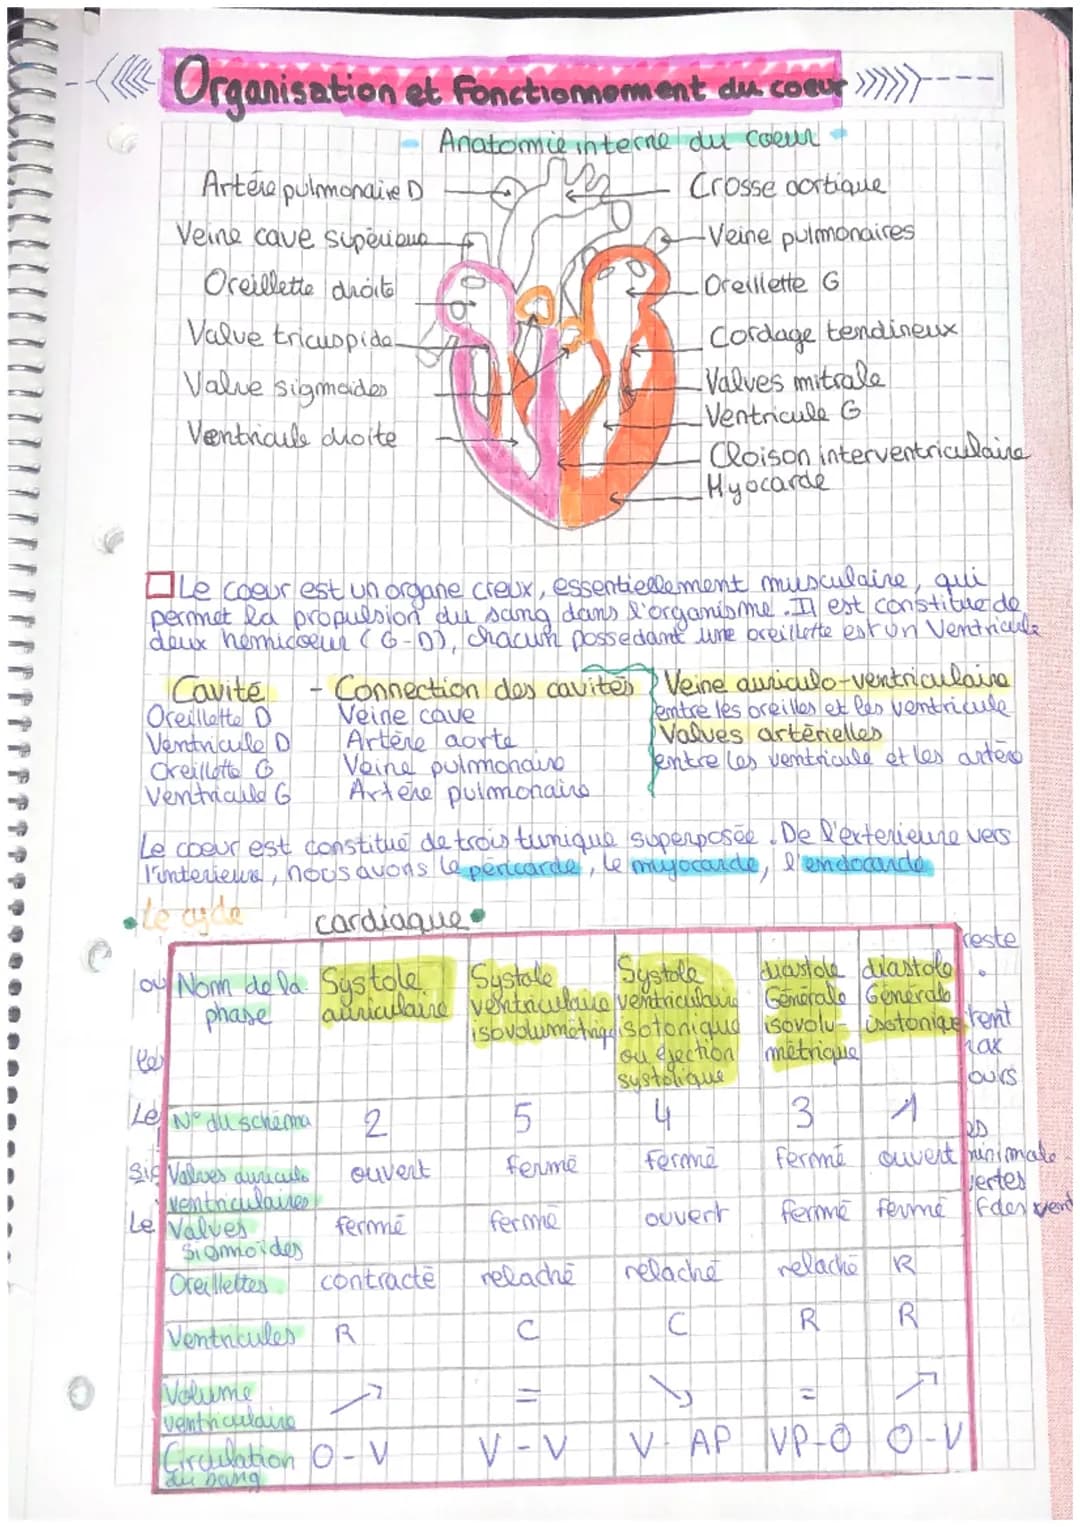 Organisation et Fonctionnement du coeur
Anatomie interne du coeur
Artère pulmonaire D
Crosse aortique
Veine cave supérieure
Veine pulmonaires
Oreillette droite
Oreillette G
Valve tricuspide
Cordage tendineux
Valve sigmoides
Valves mitrale
Ventricule droite
Ventricule G
Cloison interventriculaire
Myocarde
Le coeur est un organe creux, essentiellement musculaire, qui
permet la propulsion du sang dans l'organisme. Il est constitué de
deux hémicoeur (G-D), chacun possedant une oreillette est un Ventricule
Cavité - Connection des cavités
Oreillette D Veine cave
Ventricule D Artère aorte
Oreillette G Veine pulmonaire
Ventricule G Artère pulmonaire
Veine auriculo-ventriculaire
entre les oreilles et les ventricule
Valves artérielles
entre les ventricule et les artère
Le coeur est constitué de trois tunique superposée. De l'exterieure vers
l'interieur, nous avons le péricarde, le myocarde, l'endocarde
Le cycle cardiaque
Nom de la phase
Systole auriculaire
Systole ventriculaire isovolumétrique
Systole ventriculaire isotonique ou éjection systolique
diastole Générale isovolu-métrique
diastole Générale isotonique
N° du schéma 2 5 4 3 1
Valves auriculo ventriculaires ouvert fermé fermé fermé ouvert
Valves sigmoïdes fermé fermé ouvert fermé fermé
Oreillettes contracté relaché relaché relaché R
Ventricules R C C R R
Volume ventriculaire ↗ = ↘ = ↗
Circulation du sang O-V V-V V-AP VP-O O-V
ou
les
Le
Le
reste
ours
minimale